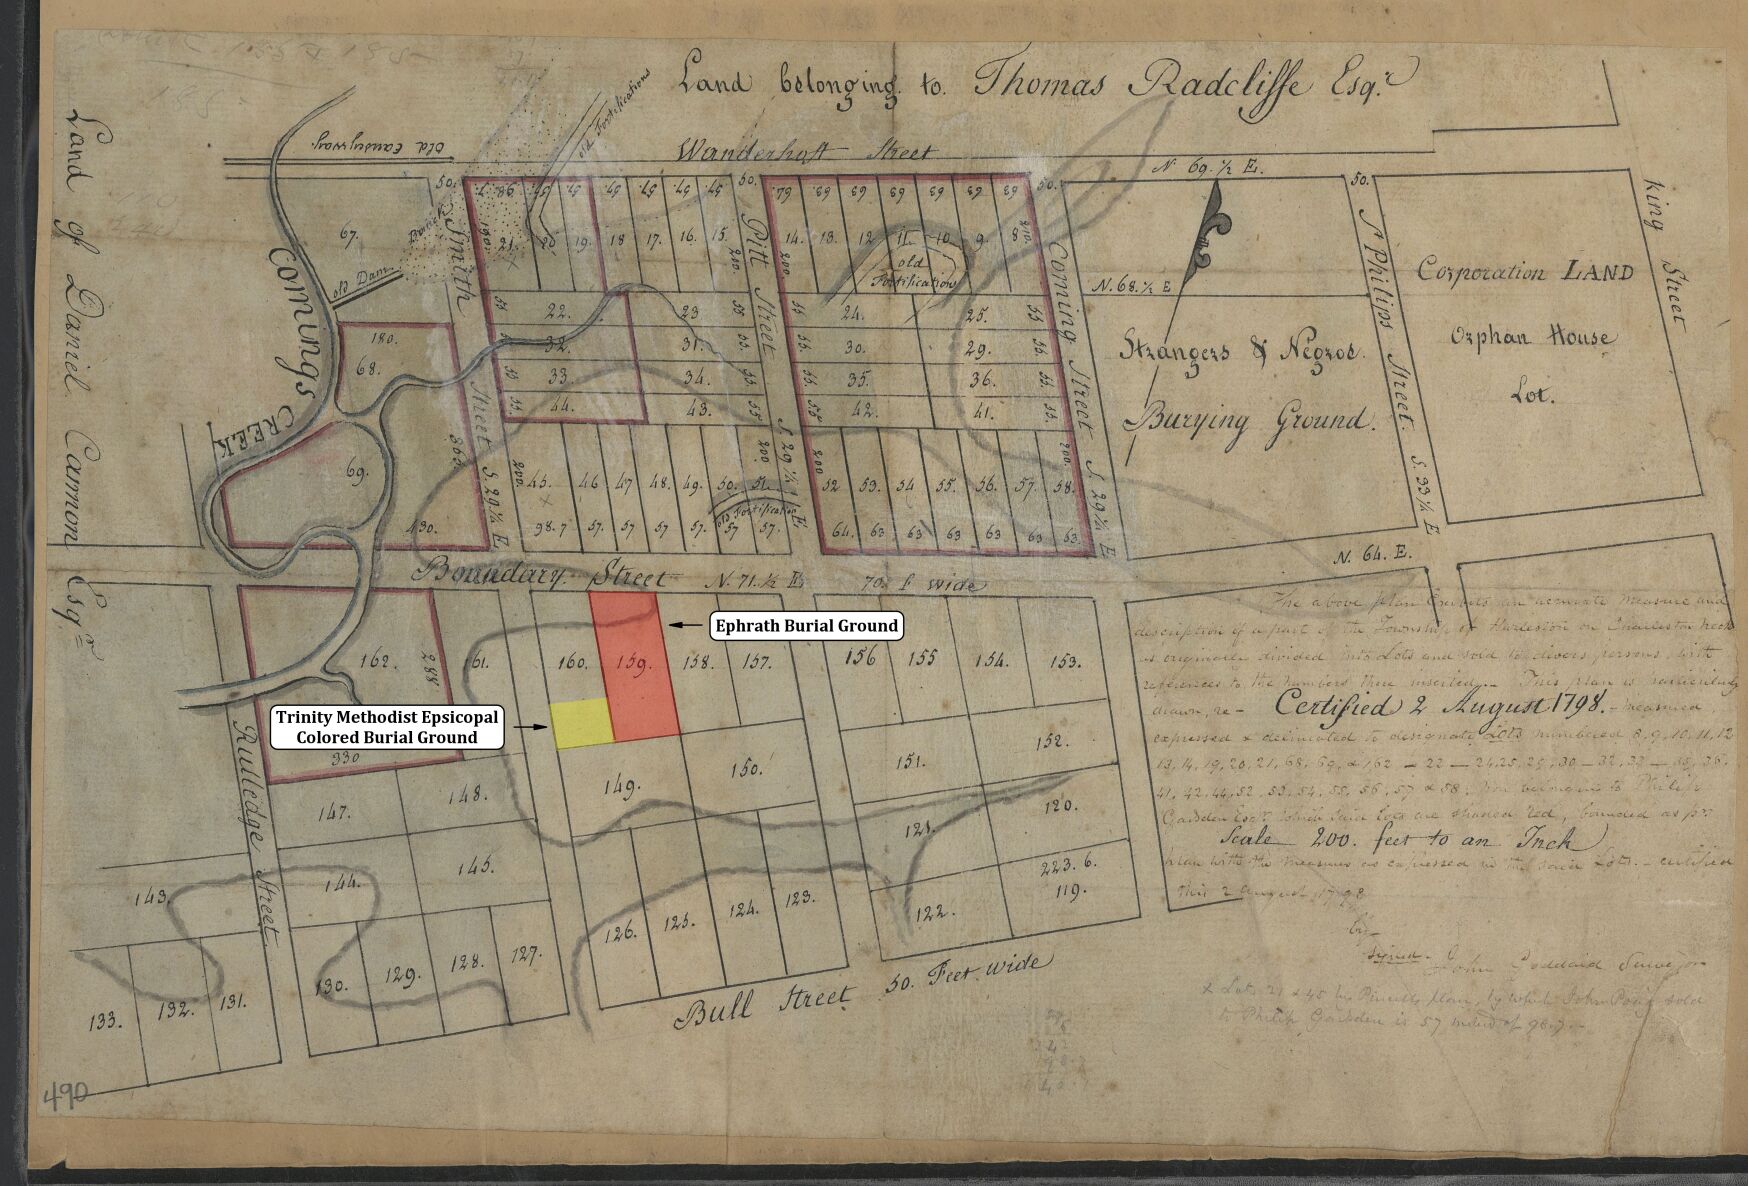 Land belonging to Thomas Radcliffe Esqr.
old Fortifications
Wanderhoft Street
N. 69. ½ E.
Old Causeyway
50.
50.
50.
50.
king Street
Land of Daniel Cannon Esqr
67.
Branch
Smith Street S. 29 ½ E
Pitt Street S. 29 ½ E
Coming Street S. 29 ½ E
St Philips Street. S. 33 ½ E
Comings CREEK
old Dam
57. 57. 57. 57. 57.
64. 63. 63. 63. 63. 63 63
21. 20. 19. 18 17. 16. 15.
14. 13. 12 11. 10. 9. 8
200. 200 210.
old Fortification
N. 68. ½ E
Corporation LAND
Orphan House
Lot.
Strangers & Negros.
Burying Ground.
22. 23 24. 25.
32. 31. 30. 29.
33. 34. 35. 36.
44. 43. 42. 41.
55 55 55 55
180.
68.
69.
430.
200. 45. 46 47 48. 49. 50. 51. 200
200 52 53. 54 55. 56. 57. 58. 200.
old Fortification
98.7 57. 57 57 57. 57 57.
64. 63 63 63 63 63 63
Boundary Street N. 71. ½ E. 70. f wide
N. 64. E.
Ephrath Burial Ground
162. 288 161. 160. 159. 158. 157. 156 155 154. 153.
Trinity Methodist Epsicopal
Colored Burial Ground
330
149. 150. 151. 152.
147. 148.
121. 120.
143. 144. 145.
223. 6.
119.
126. 125. 124. 123. 122.
133. 132. 131. 130. 129. 128. 127.
Rutledge Street
Bull Street 50. Feet wide
The above plan Exhibits an accurate measure and
description of a part of the Township of Harleston on Charleston neck
as originally divided into Lots and sold to divers persons, with
references to the numbers there inserted. This plan is particularly
drawn, re-
Certified 2 August 1798.
measured
expressed & delineated to designate Lots numbered 8, 9, 10, 11, 12
13, 14, 19, 20, 21, 68, 69, & 162 — 22 — 24, 25, 29, 30 — 32, 33 — 35, 36,
41, 42, 44, 52, 53, 54, 55, 56, 57 & 58; now belonging to Philip
Gadsden Esqr. which said Lots are shaded Red, bounded as pr
Scale 200. feet to an Inch
plan with the measures as expressed in the said Lots. — certified
this 2 August 1798
by
signed. John Goddard Surveyor
x Lots 21 & 45 by plan, by which John sold
to Philip Gadsden is 57 instead of 98.7.
490